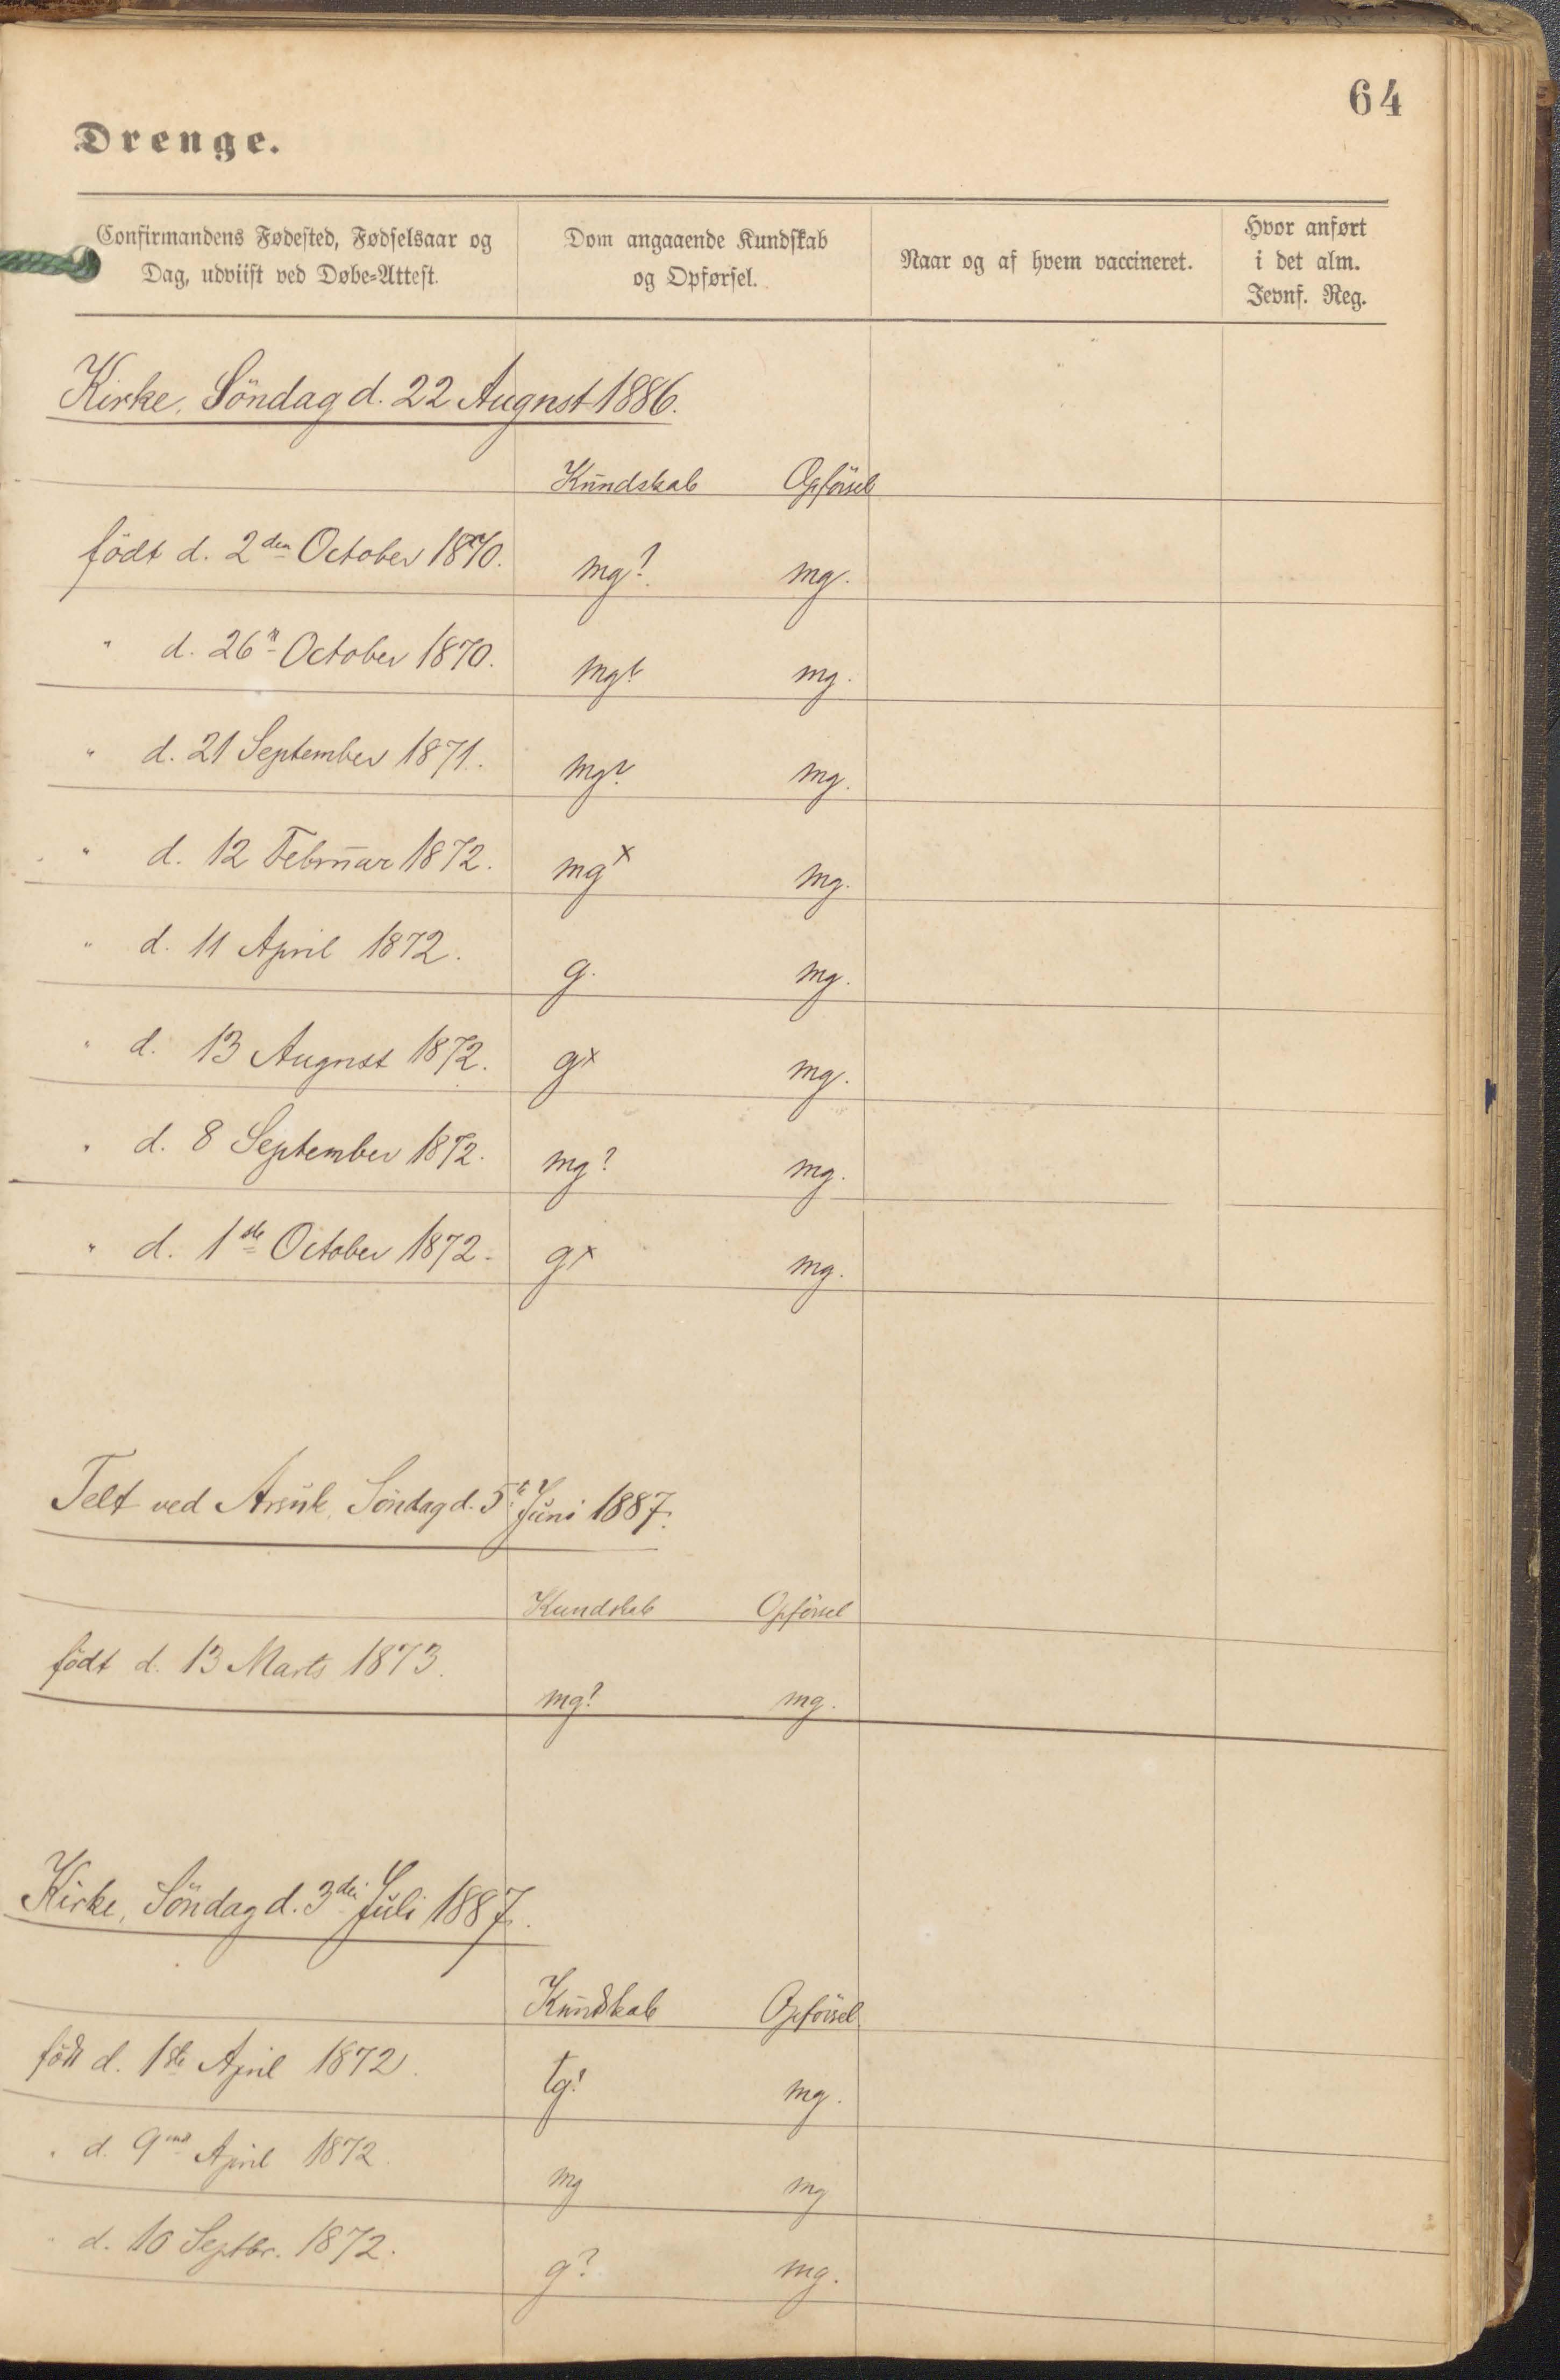 64
Drenge.
Confirmandens Fødested, Fødselsaar og
Dag, udviist ved Døbe-Attest.
Dom angaaende Kundskab
og Opførsel.
Naar og af hvem vaccineret.
Hvor anført
i det alm.
Jevnf. Reg.
Kirke, Söndag d. 22 August 1886.
Kundskab Opförsel
födt d. 2den October 1870. mg? mg.
" d. 26 October 1870. mg? mg.
" d. 21 September 1871. mg? mg.
" d. 12 Februar 1872. mgx mg.
" d. 11 April 1872. g. mg.
" d. 13 August 1872. gx mg.
" d. 8 September 1872. mg? mg.
" d. 1ste October 1872. gx mg.
Telt ved Arsuk, Söndag d. 5te Juni 1887.
Kundskab Opförsel
födt d. 13 Marts 1873. mg? mg.
Kirke, Söndag d. 3die Juli 1887.
Kundskab Opförsel
födt d. 1ste April 1872. tg? mg.
" d. 9 April 1872. mg mg
" d. 10 Septbr. 1872. g? mg.